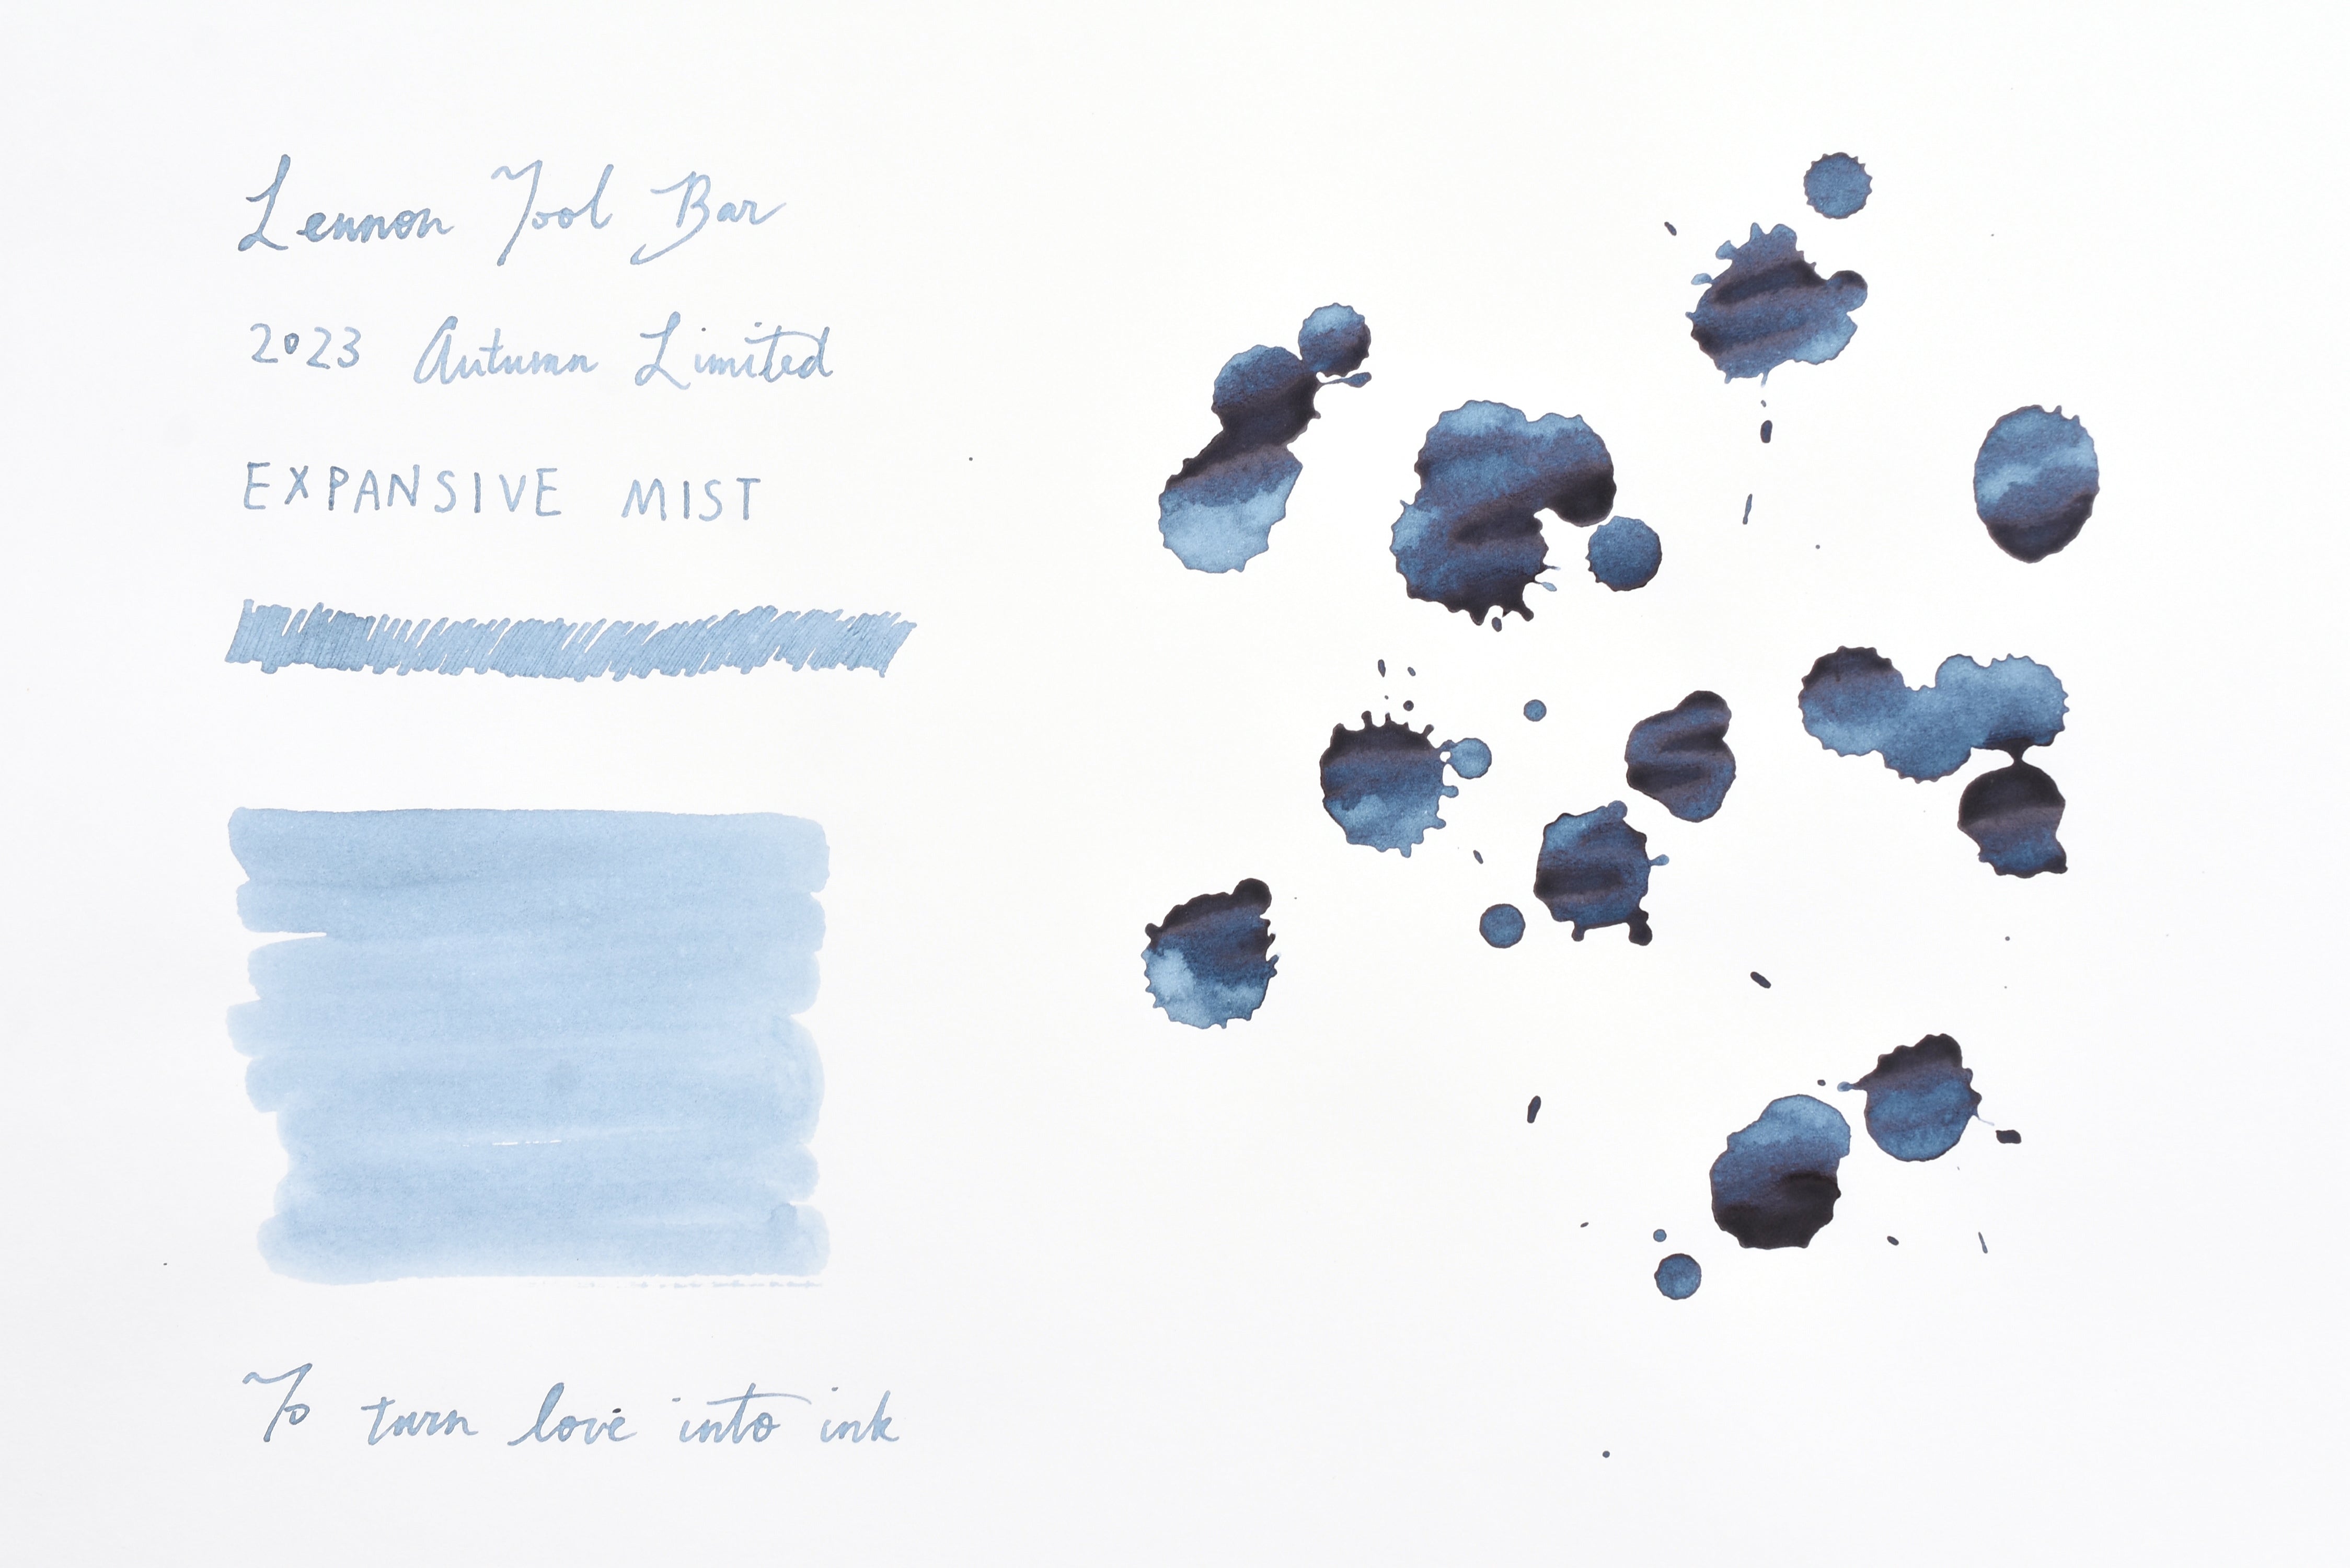 Lennon Tool Bar
2023 Autumn Limited
EXPANSIVE MIST
To turn love into ink